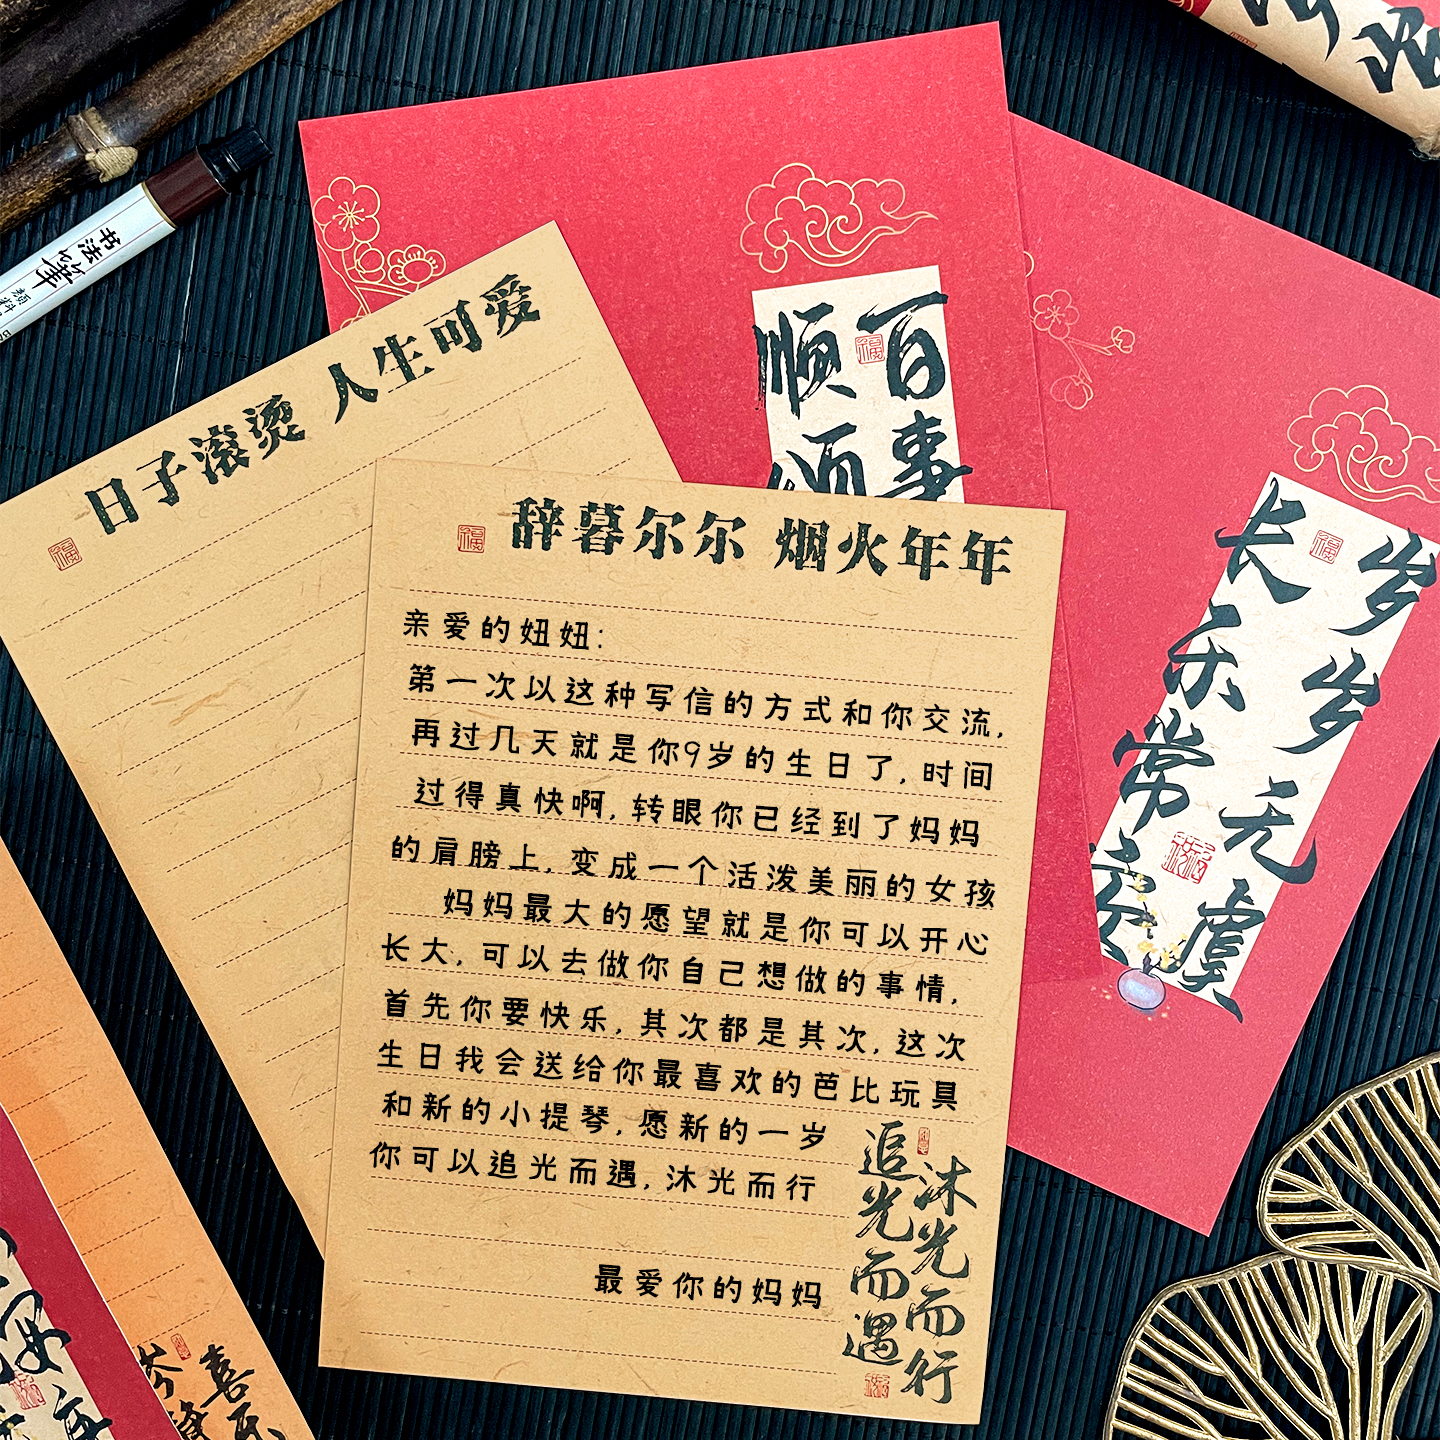 书法
笔
颜料
百事
顺
颂
岁岁无虞
长乐常安
日子滚烫 人生可爱
福
辞暮尔尔 烟火年年
福
亲爱的妞妞:
第一次以这种写信的方式和你交流,
再过几天就是你9岁的生日了,时间
过得真快啊,转眼你已经到了妈妈
的肩膀上,变成一个活泼美丽的女孩
妈妈最大的愿望就是你可以开心
长大,可以去做你自己想做的事情,
首先你要快乐,其次都是其次,这次
生日我会送给你最喜欢的芭比玩具
和新的小提琴,愿新的一岁
你可以追光而遇,沐光而行
最爱你的妈妈
追光而遇
沐光而行
喜乐